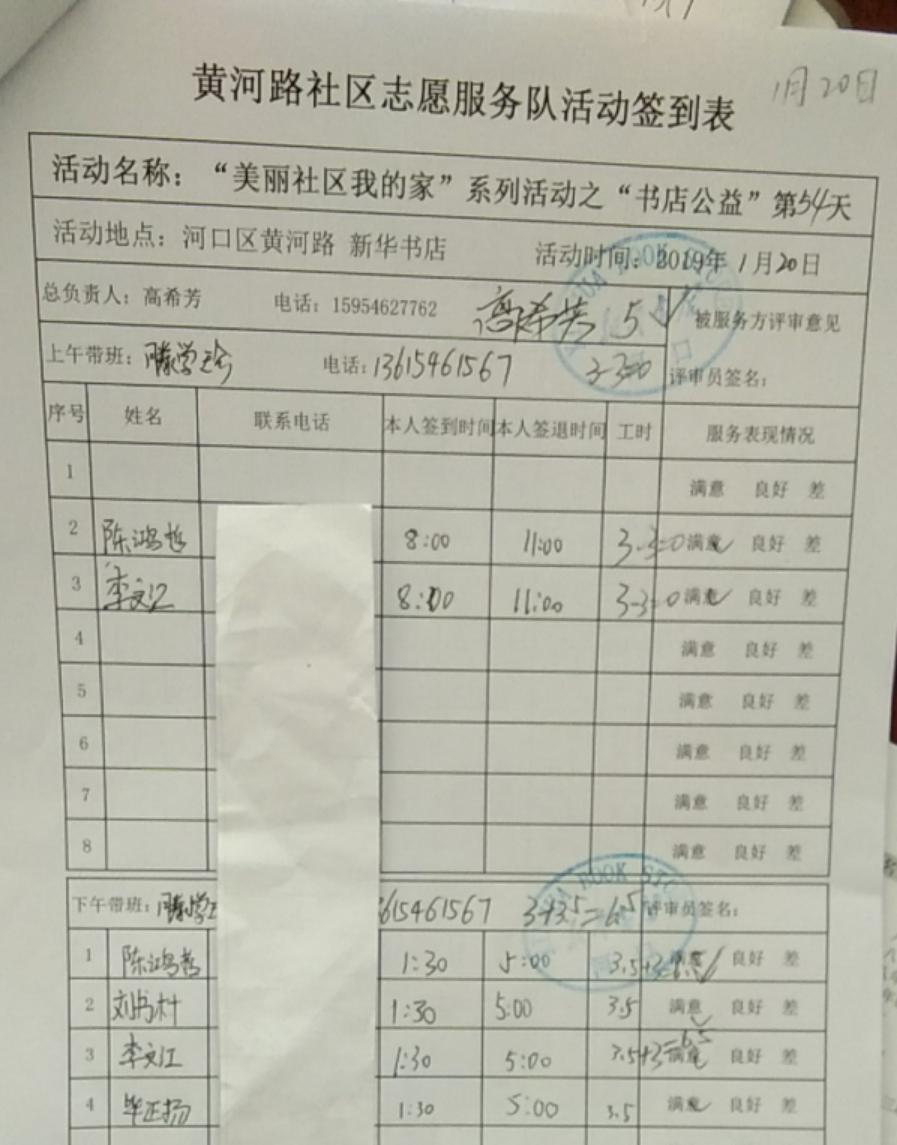 1月20日
黄河路社区志愿服务队活动签到表
活动名称：“美丽社区我的家”系列活动之“书店公益”第54天
活动地点：河口区黄河路 新华书店 活动时间：2019年1月20日
总负责人：高希芳 电话：15954627762 高希芳 5 √ 被服务方评审意见
上午带班：滕学玲 电话：13615461567 3-3=0 评审员签名：
序号 姓名 联系电话 本人签到时间 本人签退时间 工时 服务表现情况
1 满意 良好 差
2 陈鸿哲 8:00 11:00 3-3=0 满意✓ 良好 差
3 李文江 8:00 11:00 3-3=0 满意✓ 良好 差
4 满意 良好 差
5 满意 良好 差
6 满意 良好 差
7 满意 良好 差
8 满意 良好 差
BOOK STO
下午带班：滕学 615461567 3+3.5=6.5 评审员签名：
1 陈鸿哲 1:30 5:00 3.5+3=6.5 满意✓ 良好 差
2 刘书朴 1:30 5:00 3.5 满意✓ 良好 差
3 李文江 1:30 5:00 3.5+3=6.5 满意✓ 良好 差
4 毕正扬 1:30 5:00 3.5 满意✓ 良好 差